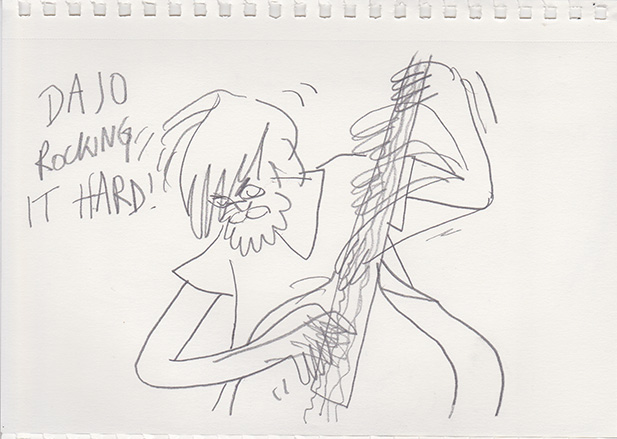 DAJO
ROCKING
IT HARD!